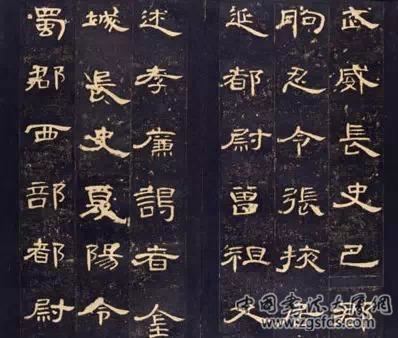 武威長史巴郡
朐忍令張掖居
延都尉曾祖父
述孝廉謁者金
城長史夏陽令
蜀郡西部都尉
中国书法大赛网
www.zgsfds.com